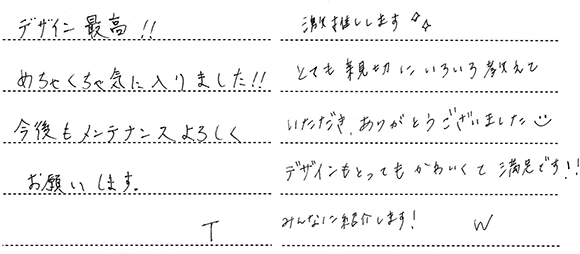 デザイン最高!!
めちゃくちゃ気に入りました!!
今後もメンテナンスよろしく
お願いします。
T
激推しします☆☆
とても親切にいろいろ教えて
いただき、ありがとうございました☺
デザインもとってもかわいくて満足です!!
みんなに紹介します!
W